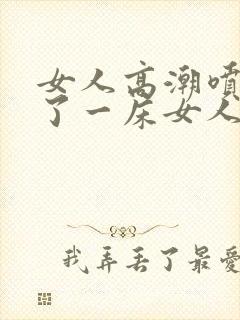 女人高潮喷
了一床女人
我弄丢了最爱